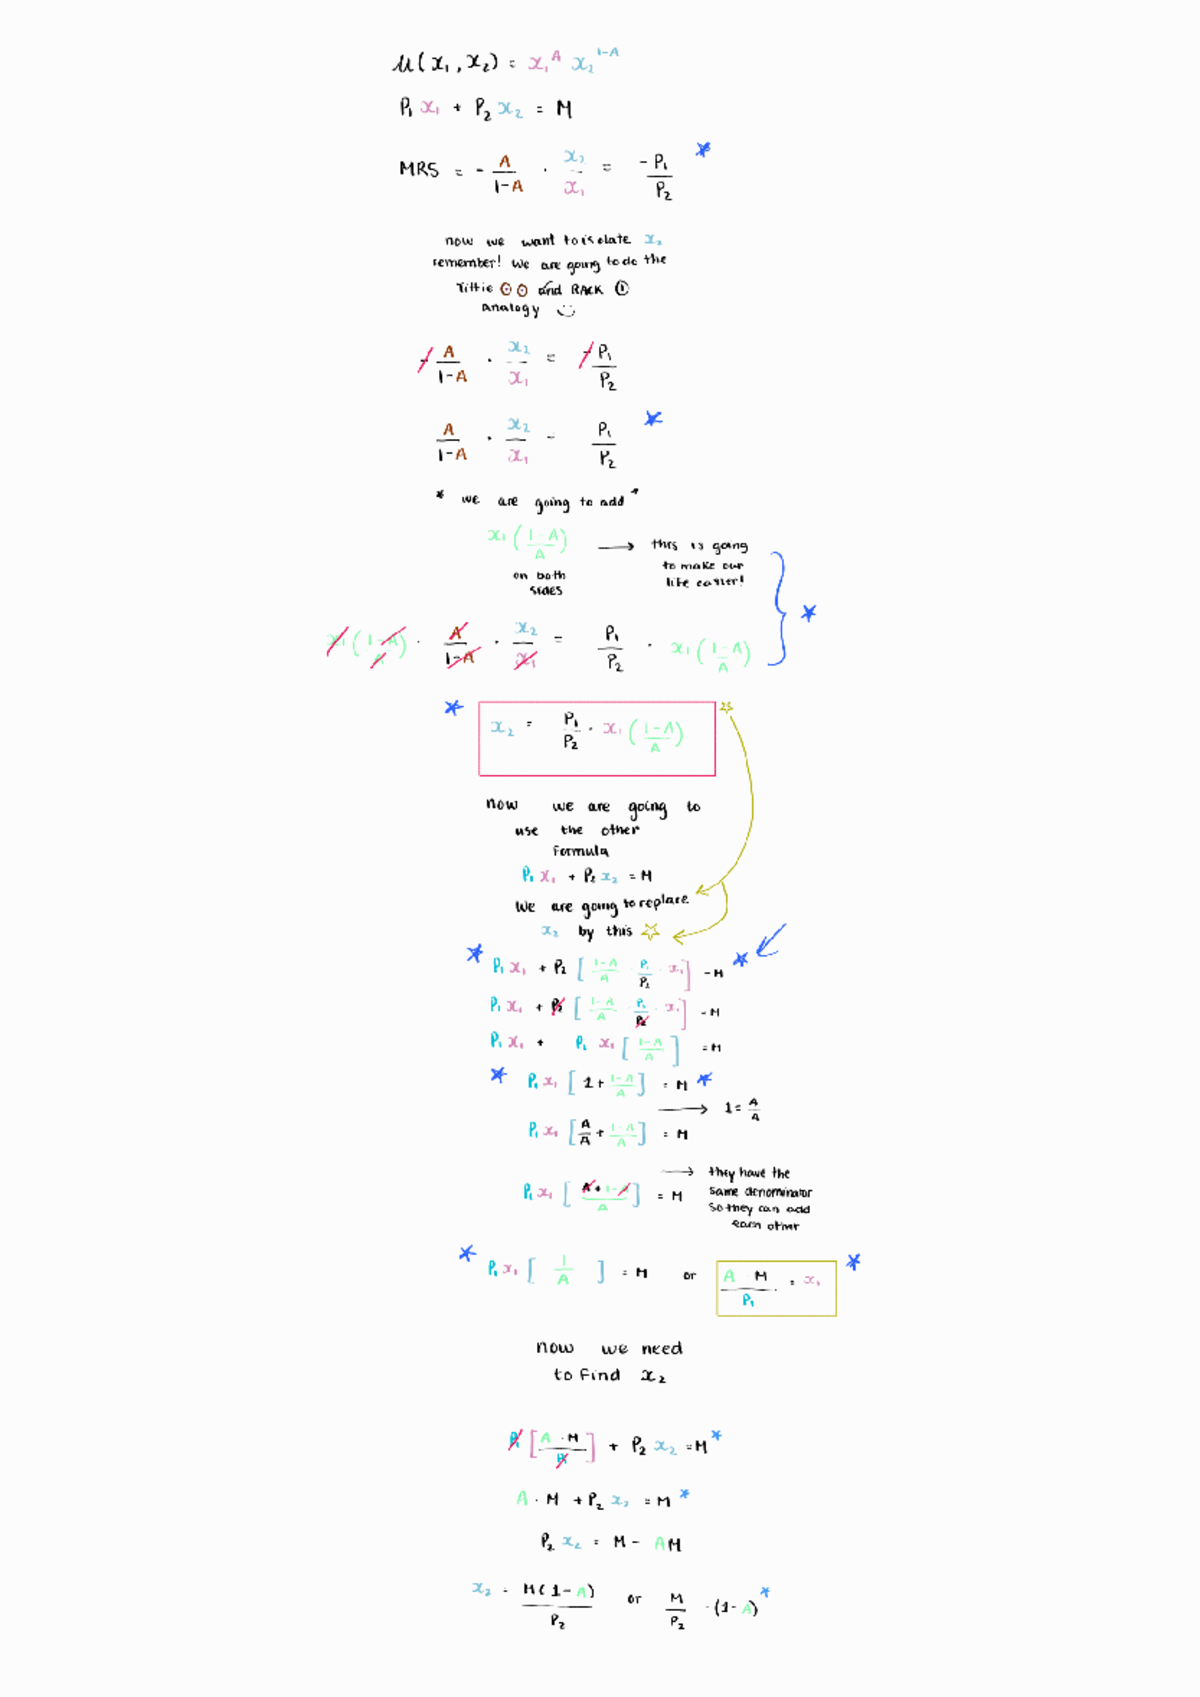 u(x₁, x₂) = x₁^A x₂^1-A
P₁ x₁ + P₂ x₂ = M
MRS = - A/1-A · x₂/x₁ = -P₁/P₂ *
now we want to isolate x₂
remember! We are going to do the
Tittie and RACK
analogy
- A/1-A · x₂/x₁ = -P₁/P₂
A/1-A · x₂/x₁ - P₁/P₂ *
* we are going to add *
x₁ (1-A/A) → this is going
on both to make our
sides life easier!
x₁ (1-A/A) · A/1-A · x₂/x₁ = P₁/P₂ · x₁ (1-A/A) *
* x₂ = P₁/P₂ · x₁ (1-A/A)
now we are going to
use the other
formula
P₁ x₁ + P₂ x₂ = M
We are going to replace
x₂ by this ☆
* P₁ x₁ + P₂ [1-A/A P₁/P₂ · x₁] - M *
P₁ x₁ + P₂ [1-A/A P₁/P₂ · x₁] - M
P₁ x₁ + P₁ x₁ [1-A/A] = M
* P₁ x₁ [1 + 1-A/A] = M *
→ 1 = A/A
P₁ x₁ [A/A + 1-A/A] = M
→ they have the
P₁ x₁ [A + 1-A/A] = M same denominator
so they can add
each other
* P₁ x₁ [1/A] = M or A · M/P₁ = x₁ *
now we need
to find x₂
P₁ [A · M/P₁] + P₂ x₂ = M *
A · M + P₂ x₂ = M *
P₂ x₂ = M - AM
x₂ = M(1-A)/P₂ or M/P₂ · (1-A) *